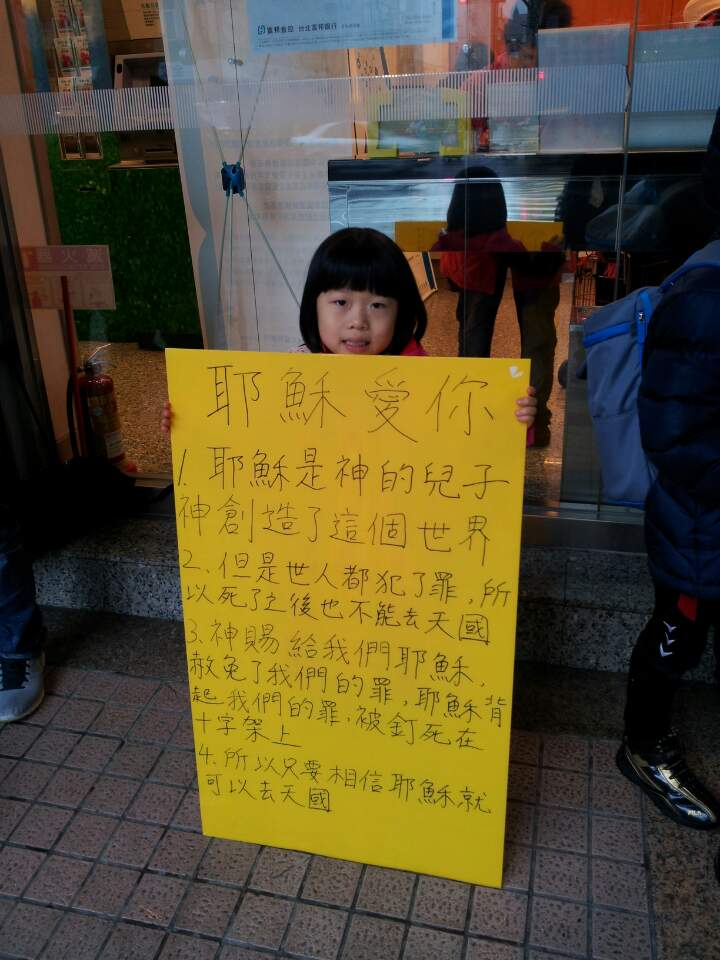 富邦金控 台北富邦銀行
耶穌愛你
1. 耶穌是神的兒子
神創造了這個世界
2. 但是世人都犯了罪,所
以死了之後也不能去天國
3. 神賜給我們耶穌,
赦免了我們的罪,耶穌背
起我們的罪,被釘死在
十字架上
4. 所以只要相信耶穌就
可以去天國